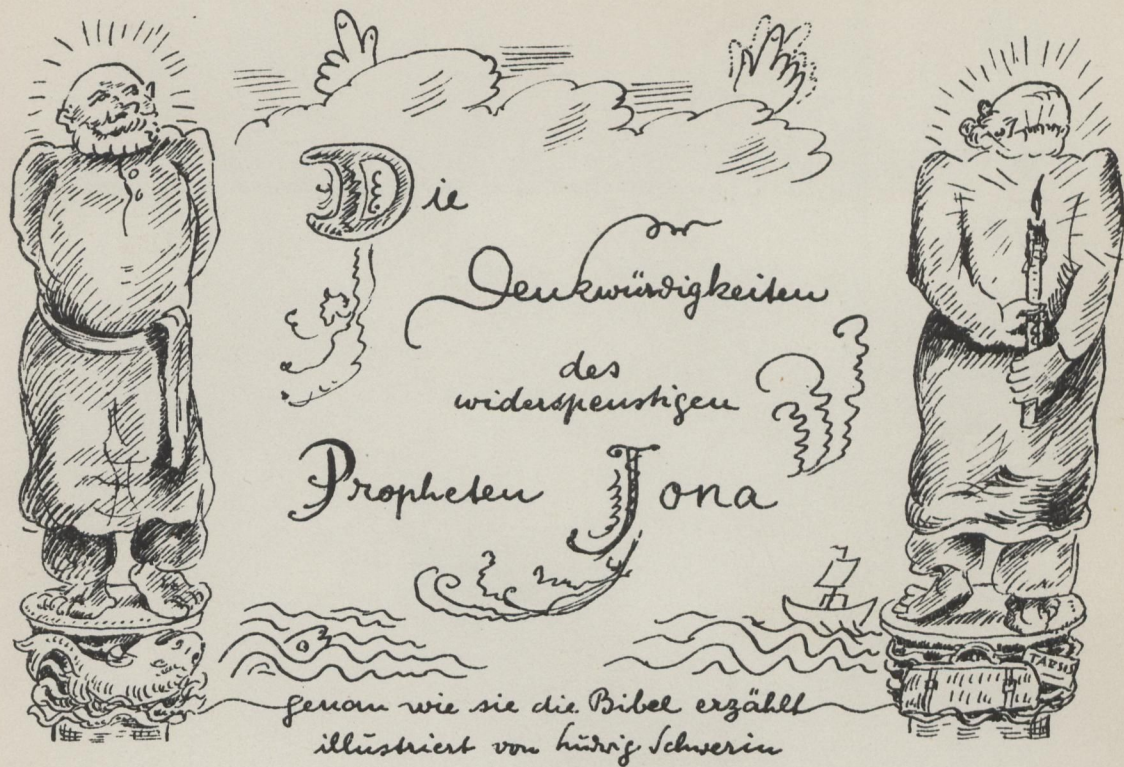 Die
Denkwürdigkeiten
des
widerspenstigen
Propheten Jona
TARSIS
genau wie sie die Bibel erzählt
illustriert von Ludwig Schwerin